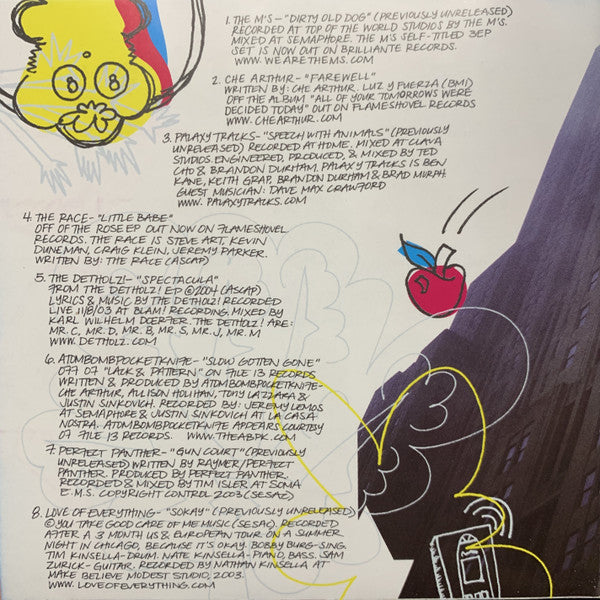 1. THE M'S - "DIRTY OLD DOG" (PREVIOUSLY UNRELEASED)
RECORDED AT TOP OF THE WORLD STUDIOS BY THE M'S.
MIXED AT SEMAPHORE. THE M'S SELF-TITLED 3EP
SET IS NOW OUT ON BRILLIANTE RECORDS.
WWW.WEARETHEMS.COM
2. CHE ARTHUR - "FAREWELL"
WRITTEN BY: CHE ARTHUR. LUZ Y FUERZA (BMI)
OFF THE ALBUM "ALL OF YOUR TOMORROWS WERE
DECIDED TODAY" OUT ON FLAMESHOVEL RECORDS
WWW.CHEARTHUR.COM
3. PALAXY TRACKS - "SPEECH WITH ANIMALS" (PREVIOUSLY
UNRELEASED) RECORDED AT HOME. MIXED AT CLAVA
STUDIOS. ENGINEERED, PRODUCED, & MIXED BY TED
CHO & BRANDON DURHAM. PALAXY TRACKS IS BEN
KANE, KEITH GRAP, BRANDON DURHAM & BRAD MURPH.
GUEST MUSICIAN: DAVE MAX CRAWFORD
WWW.PALAXYTRACKS.COM
4. THE RACE - "LITTLE BABE"
OFF OF THE ROSE EP OUT NOW ON FLAMESHOVEL
RECORDS. THE RACE IS STEVE ART, KEVIN
DUNEMAN, CRAIG KLEIN, JEREMY PARKER.
WRITTEN BY: THE RACE (ASCAP)
5. THE DETHOLZ! - "SPECTACULA"
FROM THE DETHOLZ! EP © 2004 (ASCAP)
LYRICS & MUSIC BY THE DETHOLZ! RECORDED
LIVE 11/8/03 AT BLAM! RECORDING, MIXED BY
KARL WILHELM DOERFER. THE DETHOLZ! ARE:
MR. C, MR. D, MR. B, MR. S, MR. J, MR. M
WWW.DETHOLZ.COM
6. ATOMBOMBPOCKETKNIFE - "SLOW GOTTEN GONE"
OFF OF "LACK & PATTERN" ON FILE 13 RECORDS
WRITTEN & PRODUCED BY ATOMBOMBPOCKETKNIFE -
CHE ARTHUR, ALLISON HOLLIHAN, TONY LAZZARA &
JUSTIN SINKOVICH. RECORDED BY: JEREMY LEMOS
AT SEMAPHORE & JUSTIN SINKOVICH AT LA CASA
NOSTRA. ATOMBOMBPOCKETKNIFE APPEARS COURTESY
OF FILE 13 RECORDS. WWW.THEABPK.COM
7. PERFECT PANTHER - "GUN COURT" (PREVIOUSLY
UNRELEASED) WRITTEN BY RAYMER/PERFECT
PANTHER. PRODUCED BY PERFECT PANTHER.
RECORDED & MIXED BY TIM ISLER AT SOMA
E.M.S. COPYRIGHT CONTROL 2003 (SESAC)
8. LOVE OF EVERYTHING - "SOKAY" (PREVIOUSLY UNRELEASED)
© YOU TAKE GOOD CARE OF ME MUSIC (SESAC). RECORDED
AFTER A 3 MONTH US & EUROPEAN TOUR ON A SUMMER
NIGHT IN CHICAGO, BECAUSE IT'S OKAY. BOBBY BURG - SING.
TIM KINSELLA - DRUM. NATE KINSELLA - PIANO, BASS. SAM
ZURICK - GUITAR. RECORDED BY NATHAN KINSELLA AT
MAKE BELIEVE MODEST STUDIO, 2003.
WWW.LOVEOFEVERYTHING.COM